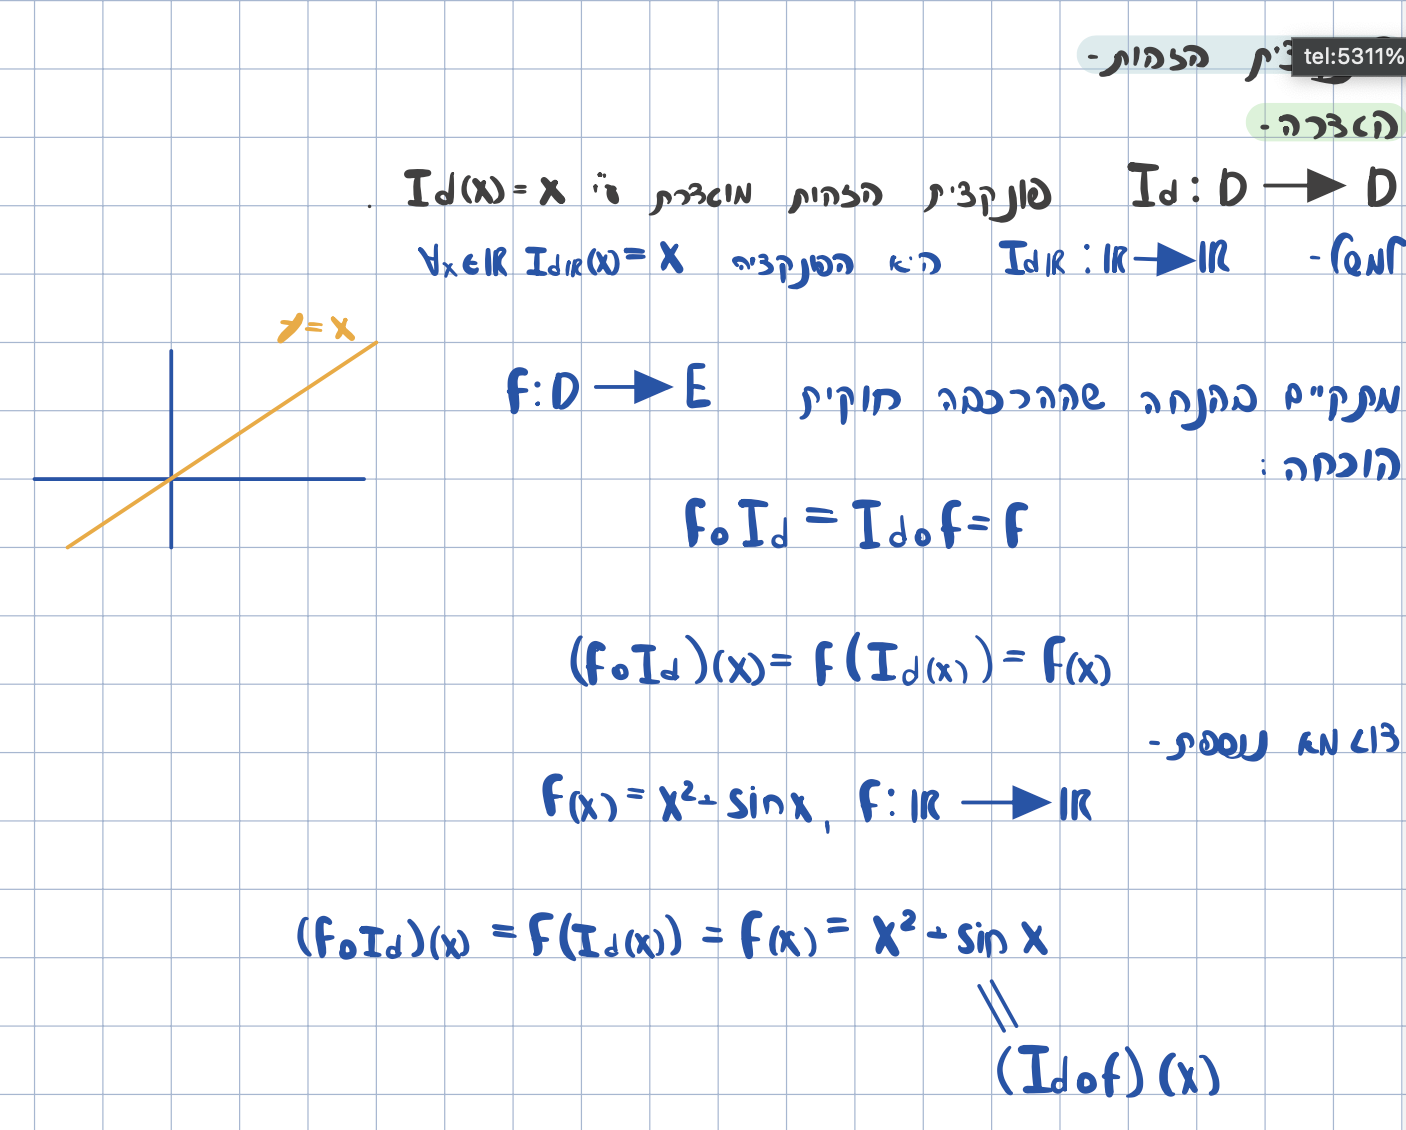 הזהות-
tel:5311%
הגדרה-
Id : D → D פונקצית הזהות מוגדרת ע״י Id(x) = x .
למשל - Id_ℝ : ℝ → ℝ היא הפונקציה ∀x∈ℝ Id_ℝ(x) = x
y = x
מתקיים בהנחה שההרכבה חוקית f : D → E
הוכחה :
f∘Id = Id∘f = f
(f∘Id)(x) = f(Id(x)) = f(x)
דוגמא נוספת -
f(x) = x² + sin x , f : ℝ → ℝ
(f∘Id)(x) = f(Id(x)) = f(x) = x² + sin x
\\
(Id∘f)(x)